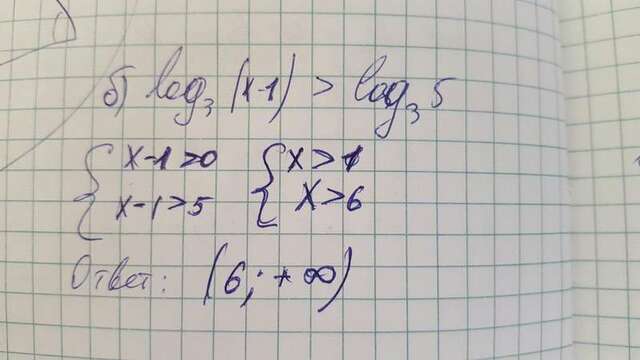 б) log₃ (x-1) > log₃ 5
{ x-1>0 { x>1
{ x-1>5 { x>6
Ответ: (6; +∞)